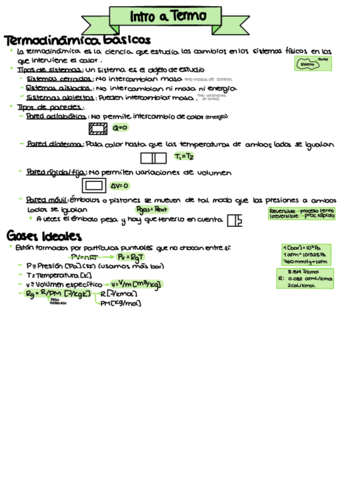 Intro a Termo
Termodinámica básicas
• La termodinámica es la ciencia que estudia los cambios en los sistemas físicos en los que interviene el calor.
• Tipos de sistemas: un sistema es el objeto de estudio
- Sistemas cerrados: No intercambian masa
- Sistemas aislados: No intercambian ni masa ni energía
- Sistemas abiertos: Pueden intercambiar masa.
• Tipos de paredes:
- Pared adiabática: No permite intercambio de calor (energía)
Q=0
- Pared diaterma: Pasa calor hasta que las temperaturas de ambos lados se igualan
T₁=T₂
- Pared rígida/fija: No permiten variaciones de volumen
ΔV=0
- Pared móvil: émbolos o pistones se mueven de tal modo que las presiones a ambos lados se igualan
Reversible → proceso lento
Irreversible → proc. rápido
• A veces el émbolo pesa y hay que tenerlo en cuenta
Gases Ideales
• Están formados por partículas puntuales que no chocan entre sí:
PV=nRT → Pv=RgT
- P= Presión [Pa] (SI) (usamos más bar)
- T= Temperatura [K]
- v= Volumen específico v=V/m [m³/kg]
- Rg= R/PM [J/kgK]
R [J/Kmol]
PM [kg/mol]
1 [bar] = 10⁵ Pa
1 atm = 101325 Pa
760 mmHg = 1 atm
R:
8.314 J/Kmol
0.082 atmL/Kmol
2 cal/Kmol